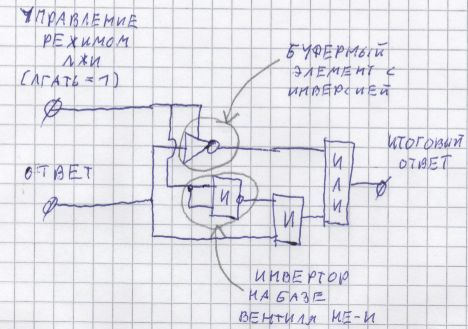 УПРАВЛЕНИЕ
РЕЖИМОМ
ЛЖИ
(ЛГАТЬ = 1)
БУФЕРНЫЙ
ЭЛЕМЕНТ С
ИНВЕРСИЕЙ
ИТОГОВЫЙ
ОТВЕТ
ИЛИ
ОТВЕТ
И
И
ИНВЕРТОР
НА БАЗЕ
ВЕНТИЛЯ НЕ-И